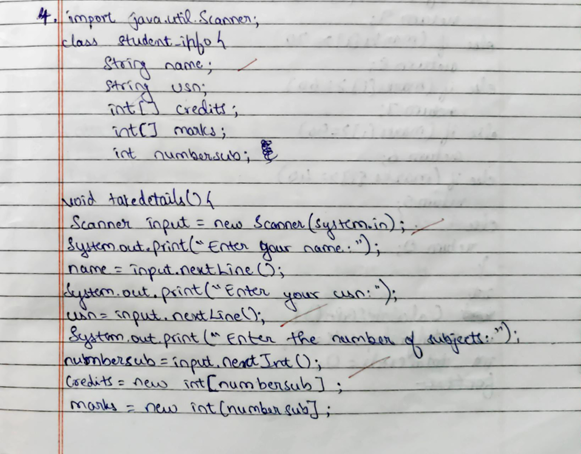 4. import java.util.Scanner;
class student_info {
String name;
String usn;
int[] credits;
int[] marks;
int numbersub;
void takedetails() {
Scanner input = new Scanner(System.in);
System.out.print("Enter your name:");
name = input.nextLine();
System.out.print("Enter your usn:");
usn = input.nextLine();
System.out.print("Enter the number of subjects:");
numbersub = input.nextInt();
credits = new int[numbersub];
marks = new int[numbersub];